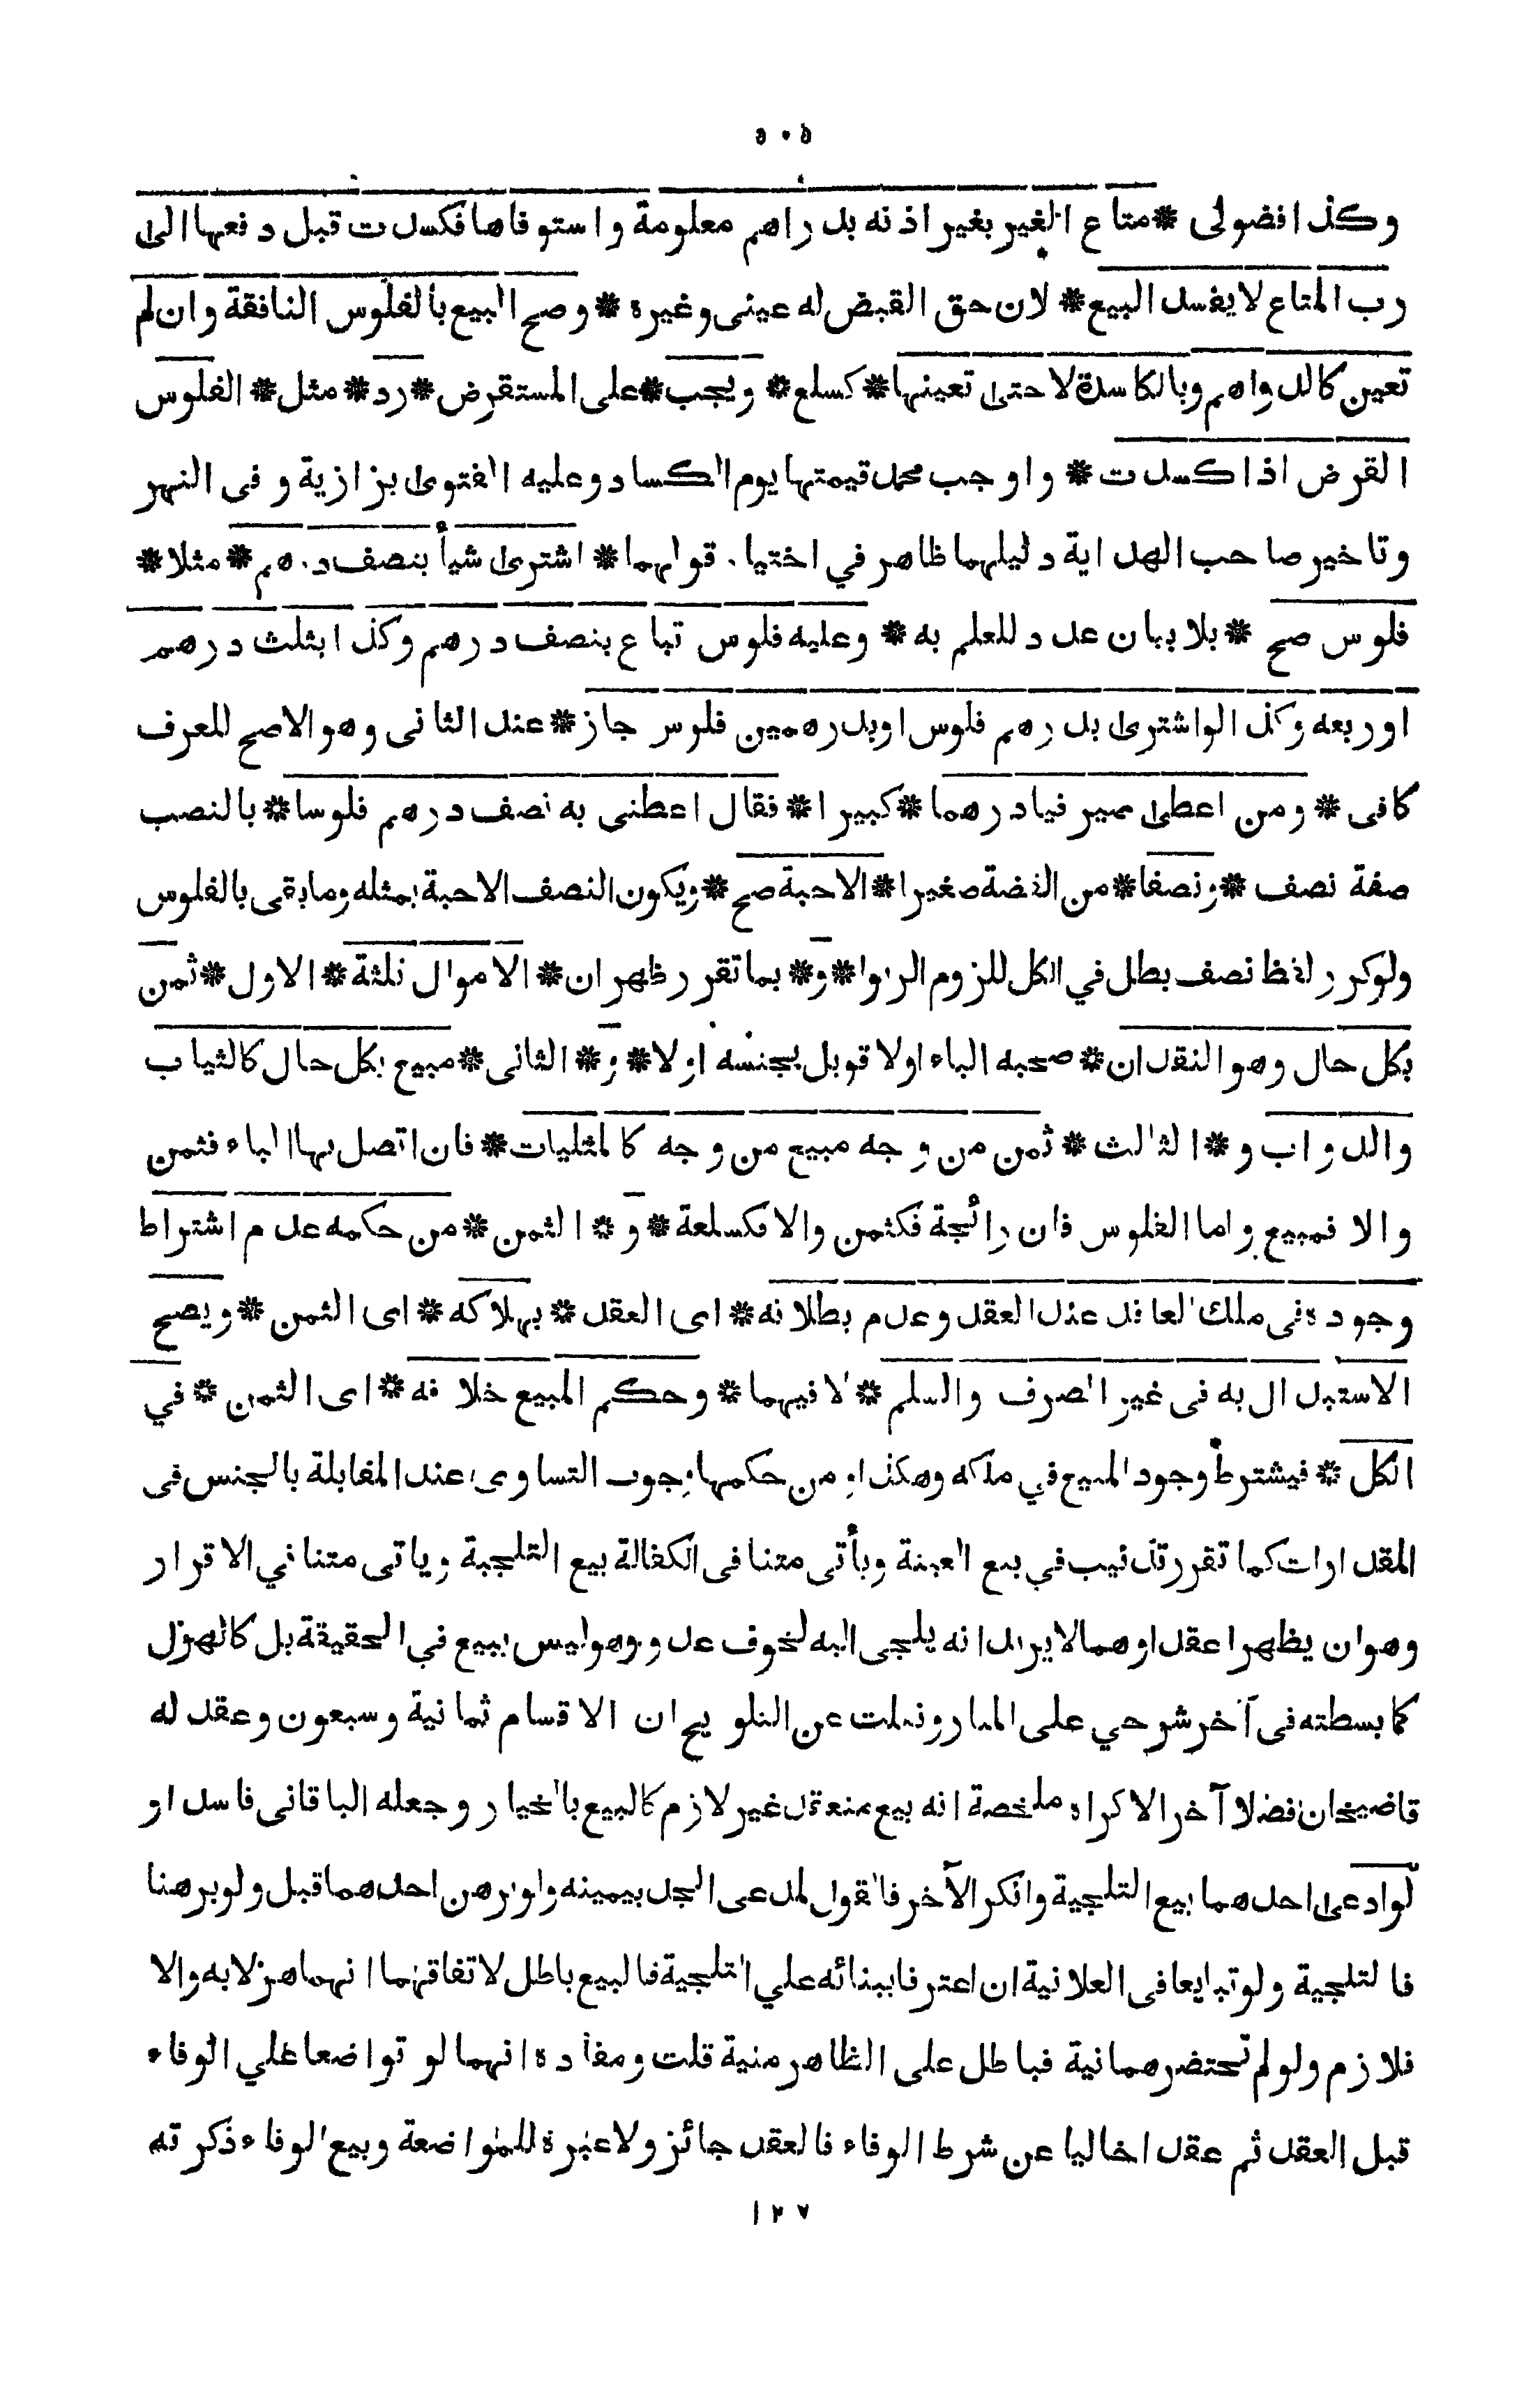 ٥٠٥
وكذا فضولى * متاع الغير بغير اذنه بدراهم معلومة واستوفاها فكسدت قبل دفعها الى
رب المتاع لا يفسد البيع * لان حق القبض له عينى وغيره * وصح البيع بالفلوس النافقة وان لم
تعين كالدراهم وبالكاسدة لا حتى تعينها * كسلع * ويجب * على المستقرض * رد * مثل * الفلوس
القرض اذا كسدت * واوجب محمد قيمتها يوم الكساد وعليه الفتوى بزازية وفى النهر
وتاخير صاحب الهداية دليلهما ظاهر في اختيار قولهما * اشترى شيأ بنصف درهم * مثلا *
فلوس صح * بلا بيان عدد للعلم به * وعليه فلوس تباع بنصف درهم وكذا بثلث درهم
او ربعه وكذا لو اشترى بدرهم فلوس او بدرهمين فلوس جاز * عند الثانى وهو الاصح للعرف
كافى * ومن اعطى صيرفيا درهما * كبيرا * فقال اعطنى به نصف درهم فلوسا * بالنصب
صفة نصف * ونصفا * من الفضة صغيرا * الاحبة صح * ويكون النصف الاحبة بمثله وما بقى بالفلوس
ولو كرر لفظ نصف بطل في الكل للزوم الربوا * و * بما تقرر ظهر ان * الاموال ثلثة * الاول * ثمن
بكل حال وهو النقدان * صحبه الباء اولا قوبل بجنسه اولا * و * الثانى * مبيع بكل حال كالثياب
والدواب و * الثالث * ثمن من وجه مبيع من وجه كالمثليات * فان اتصل بها الباء فثمن
والا فمبيع واما الفلوس فان رائجة فكثمن والا فكسلعة * و * الثمن * من حكمه عدم اشتراط
وجوده فى ملك العاقد عند العقد وعدم بطلانه * اى العقد * بهلاكه * اى الثمن * ويصح
الاستبدال به فى غير الصرف والسلم * لا فيهما * وحكم المبيع خلافه * اى الثمن * في
الكل * فيشترط وجود المبيع في ملكه وهكذا ومن حكمها وجوب التساوى عند المقابلة بالجنس فى
المقدارات كما تقرر تذنيب في بيع العينة ويأتى متنا فى الكفالة بيع التلجية وياتى متنا في الاقرار
وهو ان يظهرا عقدا وهما لا يريدانه يلجى اليه لخوف عدو وهو ليس ببيع في الحقيقة بل كالهزل
كما بسطته فى آخر شرحي على المنار ونقلت عن التلويح ان الاقسام ثمانية وسبعون وعقد له
قاضيخان فضلا آخر الاكراه ملخصة انه بيع منعقد غير لازم كالبيع بالخيار وجعله الباقانى فاسدا و
لو ادعى احدهما بيع التلجية وانكر الآخر فالقول لمدعى الجد بيمينه ولو برهن احدهما قبل ولو برهنا
فالتلجية ولو تبايعا فى العلانية ان اعترفا ببنائه علي التلجية فالبيع باطل لاتفاقهما انهما هزلا به والا
فلازم ولو لم تحتضرهما نية فباطل على الظاهر منية قلت ومفاده انهما لو تواضعا علي الوفاء
قبل العقد ثم عقدا خاليا عن شرط الوفاء فالعقد جائز ولا عبرة للمواضعة وبيع الوفاء ذكرته
١٢٧